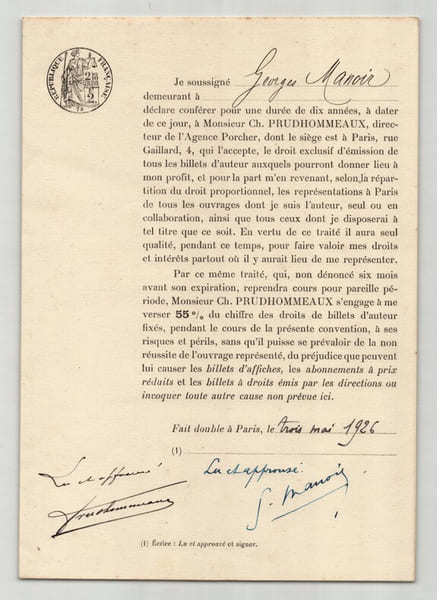 RÉPUBLIQUE FRANÇAISE
2
5
Je soussigné Georges Manoir
demeurant à
déclare conférer pour une durée de dix années, à dater
de ce jour, à Monsieur Ch. PRUDHOMMEAUX, direc-
teur de l'Agence Porcher, dont le siège est à Paris, rue
Gaillard, 4, qui l'accepte, le droit exclusif d'émission de
tous les billets d'auteur auxquels pourront donner lieu à
mon profit, et pour la part m'en revenant, selon la répar-
tition du droit proportionnel, les représentations à Paris
de tous les ouvrages dont je suis l'auteur, seul ou en
collaboration, ainsi que tous ceux dont je disposerai à
tel titre que ce soit. En vertu de ce traité il aura seul
qualité, pendant ce temps, pour faire valoir mes droits
et intérêts partout où il y aurait lieu de me représenter.
Par ce même traité, qui, non dénoncé six mois
avant son expiration, reprendra cours pour pareille pé-
riode, Monsieur Ch. PRUDHOMMEAUX s'engage à me
verser 55 % du chiffre des droits de billets d'auteur
fixés, pendant le cours de la présente convention, à ses
risques et périls, sans qu'il puisse se prévaloir de la non
réussite de l'ouvrage représenté, du préjudice que peuvent
lui causer les billets d'affiches, les abonnements à prix
réduits et les billets à droits émis par les directions ou
invoquer toute autre cause non prévue ici.
Fait double à Paris, le trois mai 1926
(1)
Lu et approuvé
Lu et approuvé.
Prudhommeaux
G. Manoir
(1) Écrire : Lu et approuvé et signer.